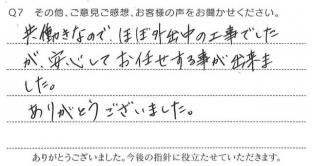 Q7 その他、ご意見ご感想、お客様の声をお聞かせください。
共働きなので、ほぼ外出中の工事でした
が、安心してお任せする事が出来ま
した。
ありがとうございました。
ありがとうございました。今後の指針に役立たせていただきます。